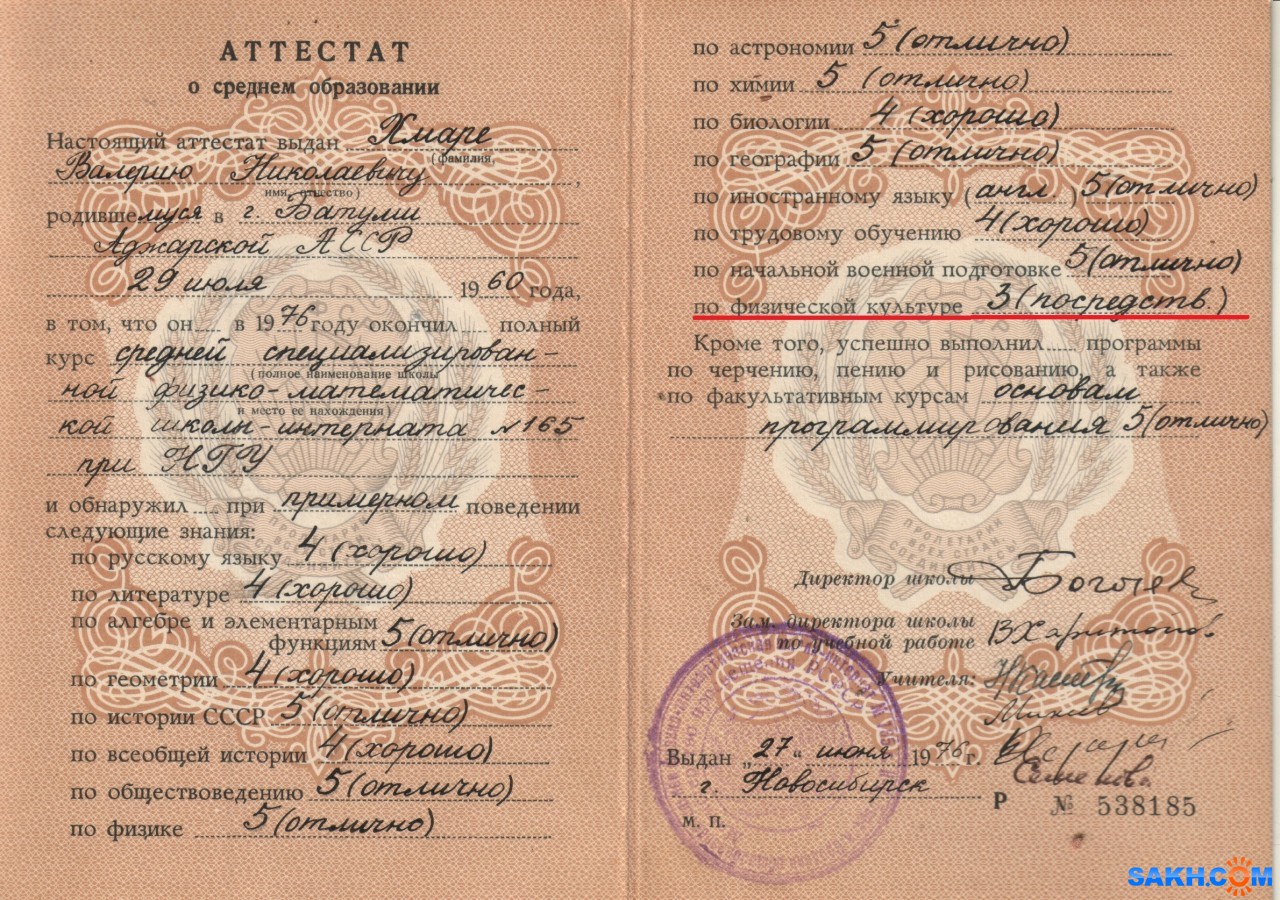 АТТЕСТАТ
о среднем образовании
Настоящий аттестат выдан Хмаре
(фамилия,
Валерию Николаевичу,
имя, отчество)
родившемуся в г. Батуми
Аджарской АССР
29 июля 1960 года,
в том, что он в 1976 году окончил полный
курс средней специализирован-
(полное наименование школы
ной физико-математичес-
и место ее нахождения)
кой школы-интерната №165
при НГУ
и обнаружил при примерном поведении
следующие знания:
по русскому языку 4 (хорошо)
по литературе 4 (хорошо)
по алгебре и элементарным
функциям 5 (отлично)
по геометрии 4 (хорошо)
по истории СССР 5 (отлично)
по всеобщей истории 4 (хорошо)
по обществоведению 5 (отлично)
по физике 5 (отлично)
по астрономии 5 (отлично)
по химии 5 (отлично)
по биологии 4 (хорошо)
по географии 5 (отлично)
по иностранному языку (англ.) 5 (отлично)
по трудовому обучению 4 (хорошо)
по начальной военной подготовке 5 (отлично)
по физической культуре 3 (посредств.)
Кроме того, успешно выполнил программы
по черчению, пению и рисованию, а также
по факультативным курсам основам
программирования 5 (отлично)
ПРОЛЕТАРИИ
ВСЕХ СТРАН,
СОЕДИНЯЙТЕСЬ
Директор школы
Зам. директора школы
по учебной работе
Учителя:
Семенова
Выдан „27“ июня 1976 г.
г. Новосибирск
Р № 538185
м. п.
SAKH.COM